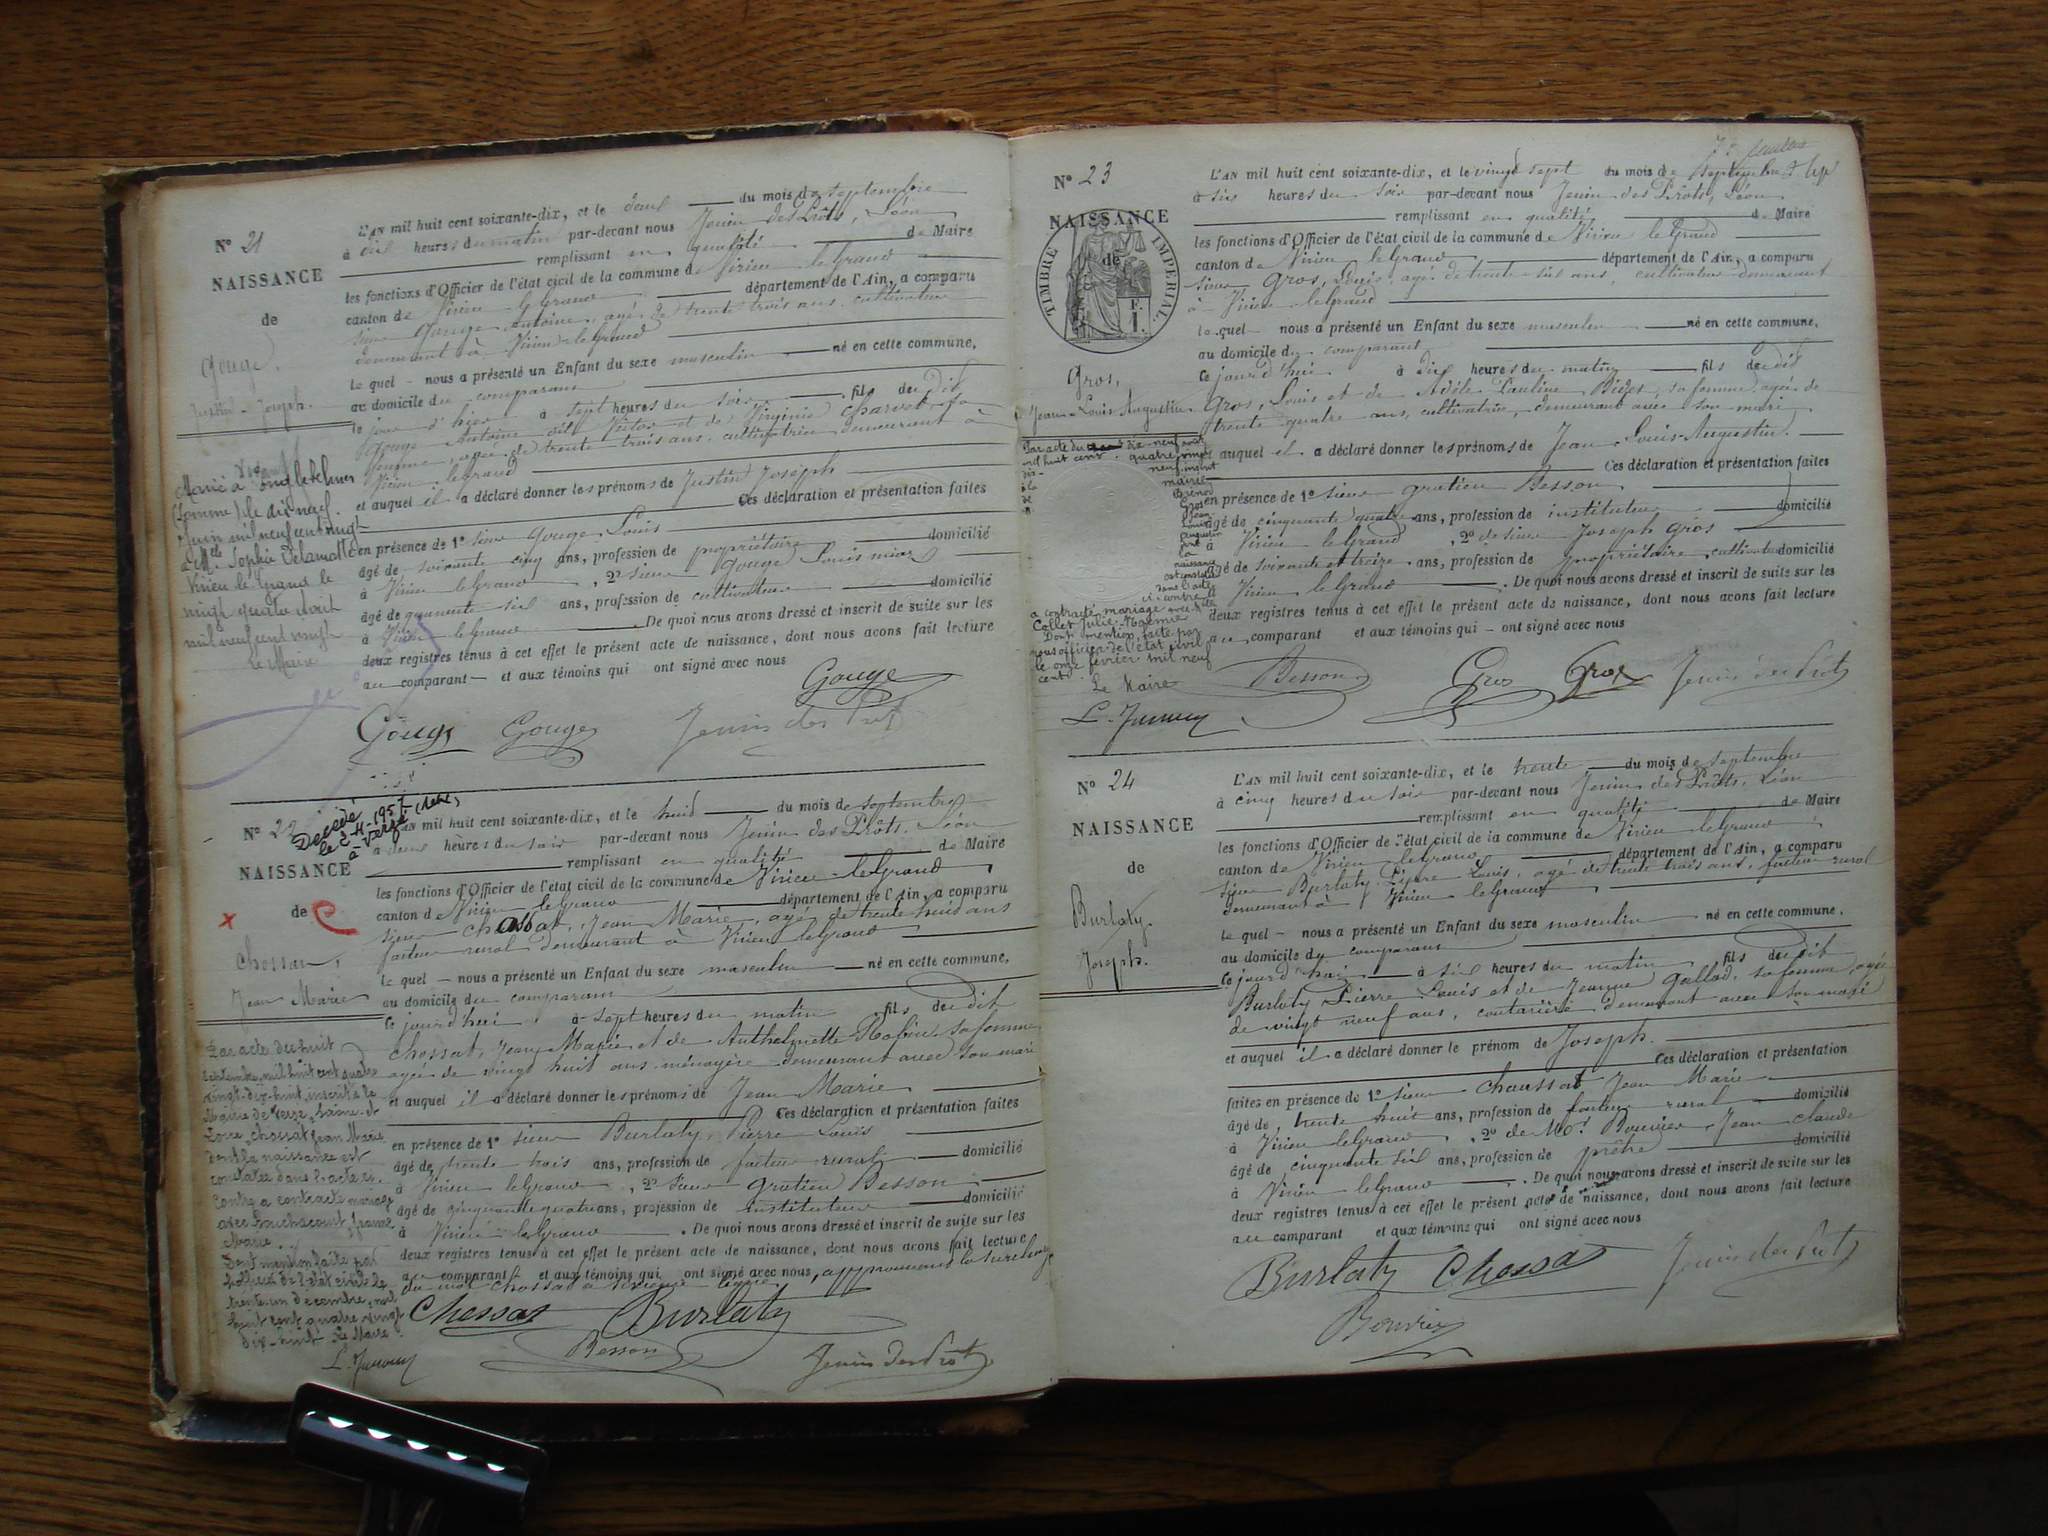 N° 21
NAISSANCE
de
Gouge,
Justin-Joseph.
L'AN mil huit cent soixante-dix, et le deux du mois de septembre
à dix heures du matin par-devant nous Jenin des Prôts, Léon
remplissant en qualité de Maire
les fonctions d'Officier de l'état civil de la commune de Virieu le Grand
canton de Virieu le Grand département de l'Ain, a comparu
sieur Gouge, Antoine, agé de trente trois ans, cultivateur
demeurant à Virieu le Grand
le quel nous a présenté un Enfant du sexe masculin né en cette commune,
au domicile du comparant
le jour d'hier à sept heures du soir, fils du dit
Gouge Antoine et de Virginie Charvet, sa
femme, agée de trente trois ans, cultivatrice demeurant à
Virieu le grand
et auquel il a déclaré donner les prénoms de Justin Joseph
Ces déclaration et présentation faites
en présence de 1° sieur Gouge Louis domicilié
âgé de soixante cinq ans, profession de propriétaire
à Virieu le Grand, 2° sieur Gouge Louis
âgé de quarante six ans, profession de cultivateur domicilié
à Virieu le Grand. De quoi nous avons dressé et inscrit de suite sur les
deux registres tenus à cet effet le présent acte de naissance, dont nous avons fait lecture
au comparant et aux témoins qui ont signé avec nous
Gouge
Gouge Gouge Jenin des Prôts
Marié à
(Somme) le dix neuf
Juin mil neuf cent vingt
à Mlle Sophie Delamotte
Virieu le Grand le
vingt quatre
mil neuf cent vingt
Le Maire
N° 22
Décédé
le 2-11-1957
à Verzé
NAISSANCE
de
Chossat,
Jean Marie
L'AN mil huit cent soixante-dix, et le huit du mois de septembre
à deux heures du soir par-devant nous Jenin des Prôts, Léon
remplissant en qualité de Maire
les fonctions d'Officier de l'état civil de la commune de Virieu-le-Grand
canton de Virieu le Grand département de l'Ain, a comparu
sieur Chossat, Jean Marie, agé de trente huit ans
facteur rural demeurant à Virieu le Grand
le quel nous a présenté un Enfant du sexe masculin né en cette commune,
au domicile du comparant
ce jourd'hui à sept heures du matin, fils du dit
Chossat, Jean Marie et de Anthelmette Robin, sa femme
agée de vingt huit ans ménagère demeurant avec son mari
et auquel il a déclaré donner les prénoms de Jean Marie
Ces déclaration et présentation faites
en présence de 1° sieur Burlaty, Pierre Louis
âgé de trente trois ans, profession de facteur rural domicilié
à Virieu le Grand, 2° sieur Gratien Besson
âgé de cinquante quatre ans, profession de instituteur domicilié
à Virieu le Grand. De quoi nous avons dressé et inscrit de suite sur les
deux registres tenus à cet effet le présent acte de naissance, dont nous avons fait lecture
au comparant et aux témoins qui ont signé avec nous, approuvant la surcharge
du mot Chossat
Chossat Burlaty
Besson Jenin des Prôts
Par acte du huit
septembre, mil huit cent quatre
vingt-dix-huit, inscrit à la
Mairie de Verzé, Saône-et
Loire, Chossat Jean Marie
dont la naissance est
constatée dans l'acte ci-
contre a contracté mariage
avec
Marie.
Dont mention faite par
l'officier de l'état civil le
trente-un décembre, mil
huit cent quatre vingt
dix-huit Le Maire
N° 23
NAISSANCE
de
TIMBRE IMPÉRIAL
1 F.
Gros,
Jean-Louis Augustin
L'AN mil huit cent soixante-dix, et le vingt sept du mois de septembre
à six heures du soir par-devant nous Jenin des Prôts, Léon
remplissant en qualité de Maire
les fonctions d'Officier de l'état civil de la commune de Virieu le Grand
canton de Virieu le Grand département de l'Ain, a comparu
sieur Gros, Louis, agé de trente six ans, cultivateur demeurant
à Virieu-le Grand
le quel nous a présenté un Enfant du sexe masculin né en cette commune,
au domicile du comparant
ce jourd'hui à dix heures du matin fils du dit
Gros, Louis et de Adèle Pauline sa femme, agée de
trente quatre ans, cultivatrice, demeurant avec son mari
et auquel il a déclaré donner les prénoms de Jean-Louis-Augustin.
Ces déclaration et présentation faites
en présence de 1° sieur Gratien Besson
âgé de cinquante quatre ans, profession de instituteur domicilié
à Virieu le Grand, 2° de sieur Joseph Gros
âgé de soixante et treize ans, profession de propriétaire, cultivateur domicilié
Virieu le Grand. De quoi nous avons dressé et inscrit de suite sur les
deux registres tenus à cet effet le présent acte de naissance, dont nous avons fait lecture
au comparant et aux témoins qui ont signé avec nous
Besson Gros Gros Jenin des Prôts
Par acte du dix-neuf
mil huit cent quatre vingt
Gros
Jean
Louis
Augustin
dont
la
naissance
est constatée
dans l'acte
ci-contre
a contracté mariage avec
Collet Julie
Dont mention faite par
nous officier de l'état civil
le onze février mil neuf
cent.
Le Maire
N° 24
NAISSANCE
de
Burlaty.
Joseph.
L'AN mil huit cent soixante-dix, et le trente du mois de septembre
à cinq heures du soir par-devant nous Jenin des Prôts, Léon
remplissant en qualité de Maire
les fonctions d'Officier de l'état civil de la commune de Virieu le Grand
canton de Virieu le Grand département de l'Ain, a comparu
sieur Burlaty, Pierre Louis, agé de trente trois ans, facteur rural
demeurant à Virieu le Grand
le quel nous a présenté un Enfant du sexe masculin né en cette commune,
au domicile du comparant
ce jourd'hui à six heures du matin fils du dit
Burlaty Pierre Louis et de Jeanne sa femme, agée
de vingt neuf ans, couturière demeurant avec son mari
et auquel il a déclaré donner le prénom de Joseph.
Ces déclaration et présentation
faites en présence de 1° sieur Chaussat Jean Marie
âgé de trente huit ans, profession de facteur rural domicilié
à Virieu le Grand, 2° de Mr Bouvier, Jean Claude
âgé de cinquante six ans, profession de prêtre domicilié
à Virieu le Grand. De quoi nous avons dressé et inscrit de suite sur les
deux registres tenus à cet effet le présent acte de naissance, dont nous avons fait lecture
au comparant et aux témoins qui ont signé avec nous
Burlaty Chossat Jenin des Prôts
Bouvier